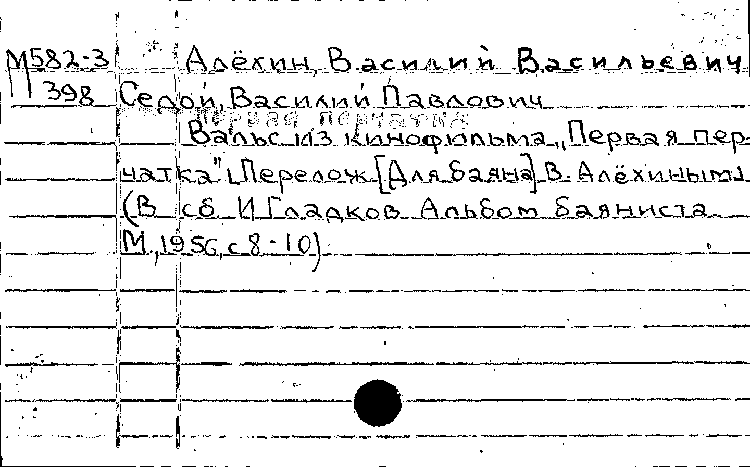 М582-3 Алёхин, Василий Васильевич
П 398 Седой, Василий Павлович
Первая перчатка
Вальс из кинофильма „Первая пер-
чатка" [Перелож. [Для баяна] В. Алёхиным]
(В сб. И Гладков Альбом баяниста
М., 1956, с 8-10)